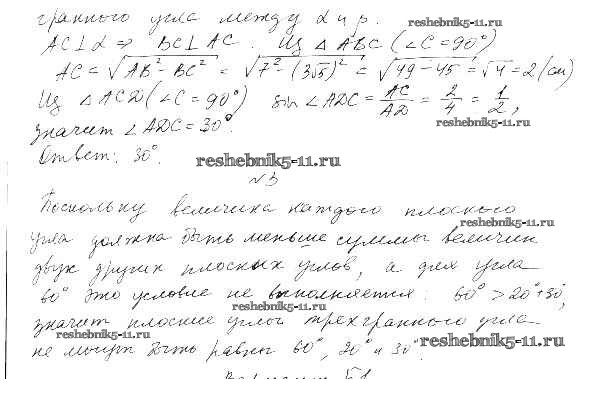 гранного угла между α и β.
reshebnik5-11.ru
AC⊥α ⇒ BC⊥AC. Из △ABC (∠C=90°)
AC = √AB² - BC² = √7² - (3√5)² = √49 - 45 = √4 = 2 (см)
Из △ACD (∠C = 90°) sin ∠ADC = AC/AD = 2/4 = 1/2,
reshebnik5-11.ru
значит ∠ADC = 30°.
Ответ: 30°.
reshebnik5-11.ru
№3
Поскольку величина каждого плоского
reshebnik5-11.ru
угла должна быть меньше суммы величин
двух других плоских углов, а для угла
60° это условие не выполняется: 60° > 20° + 30°,
reshebnik5-11.ru
значит плоские углы трехгранного угла
reshebnik5-11.ru
не могут быть равны 60°, 20° и 30°.
reshebnik5-11.ru